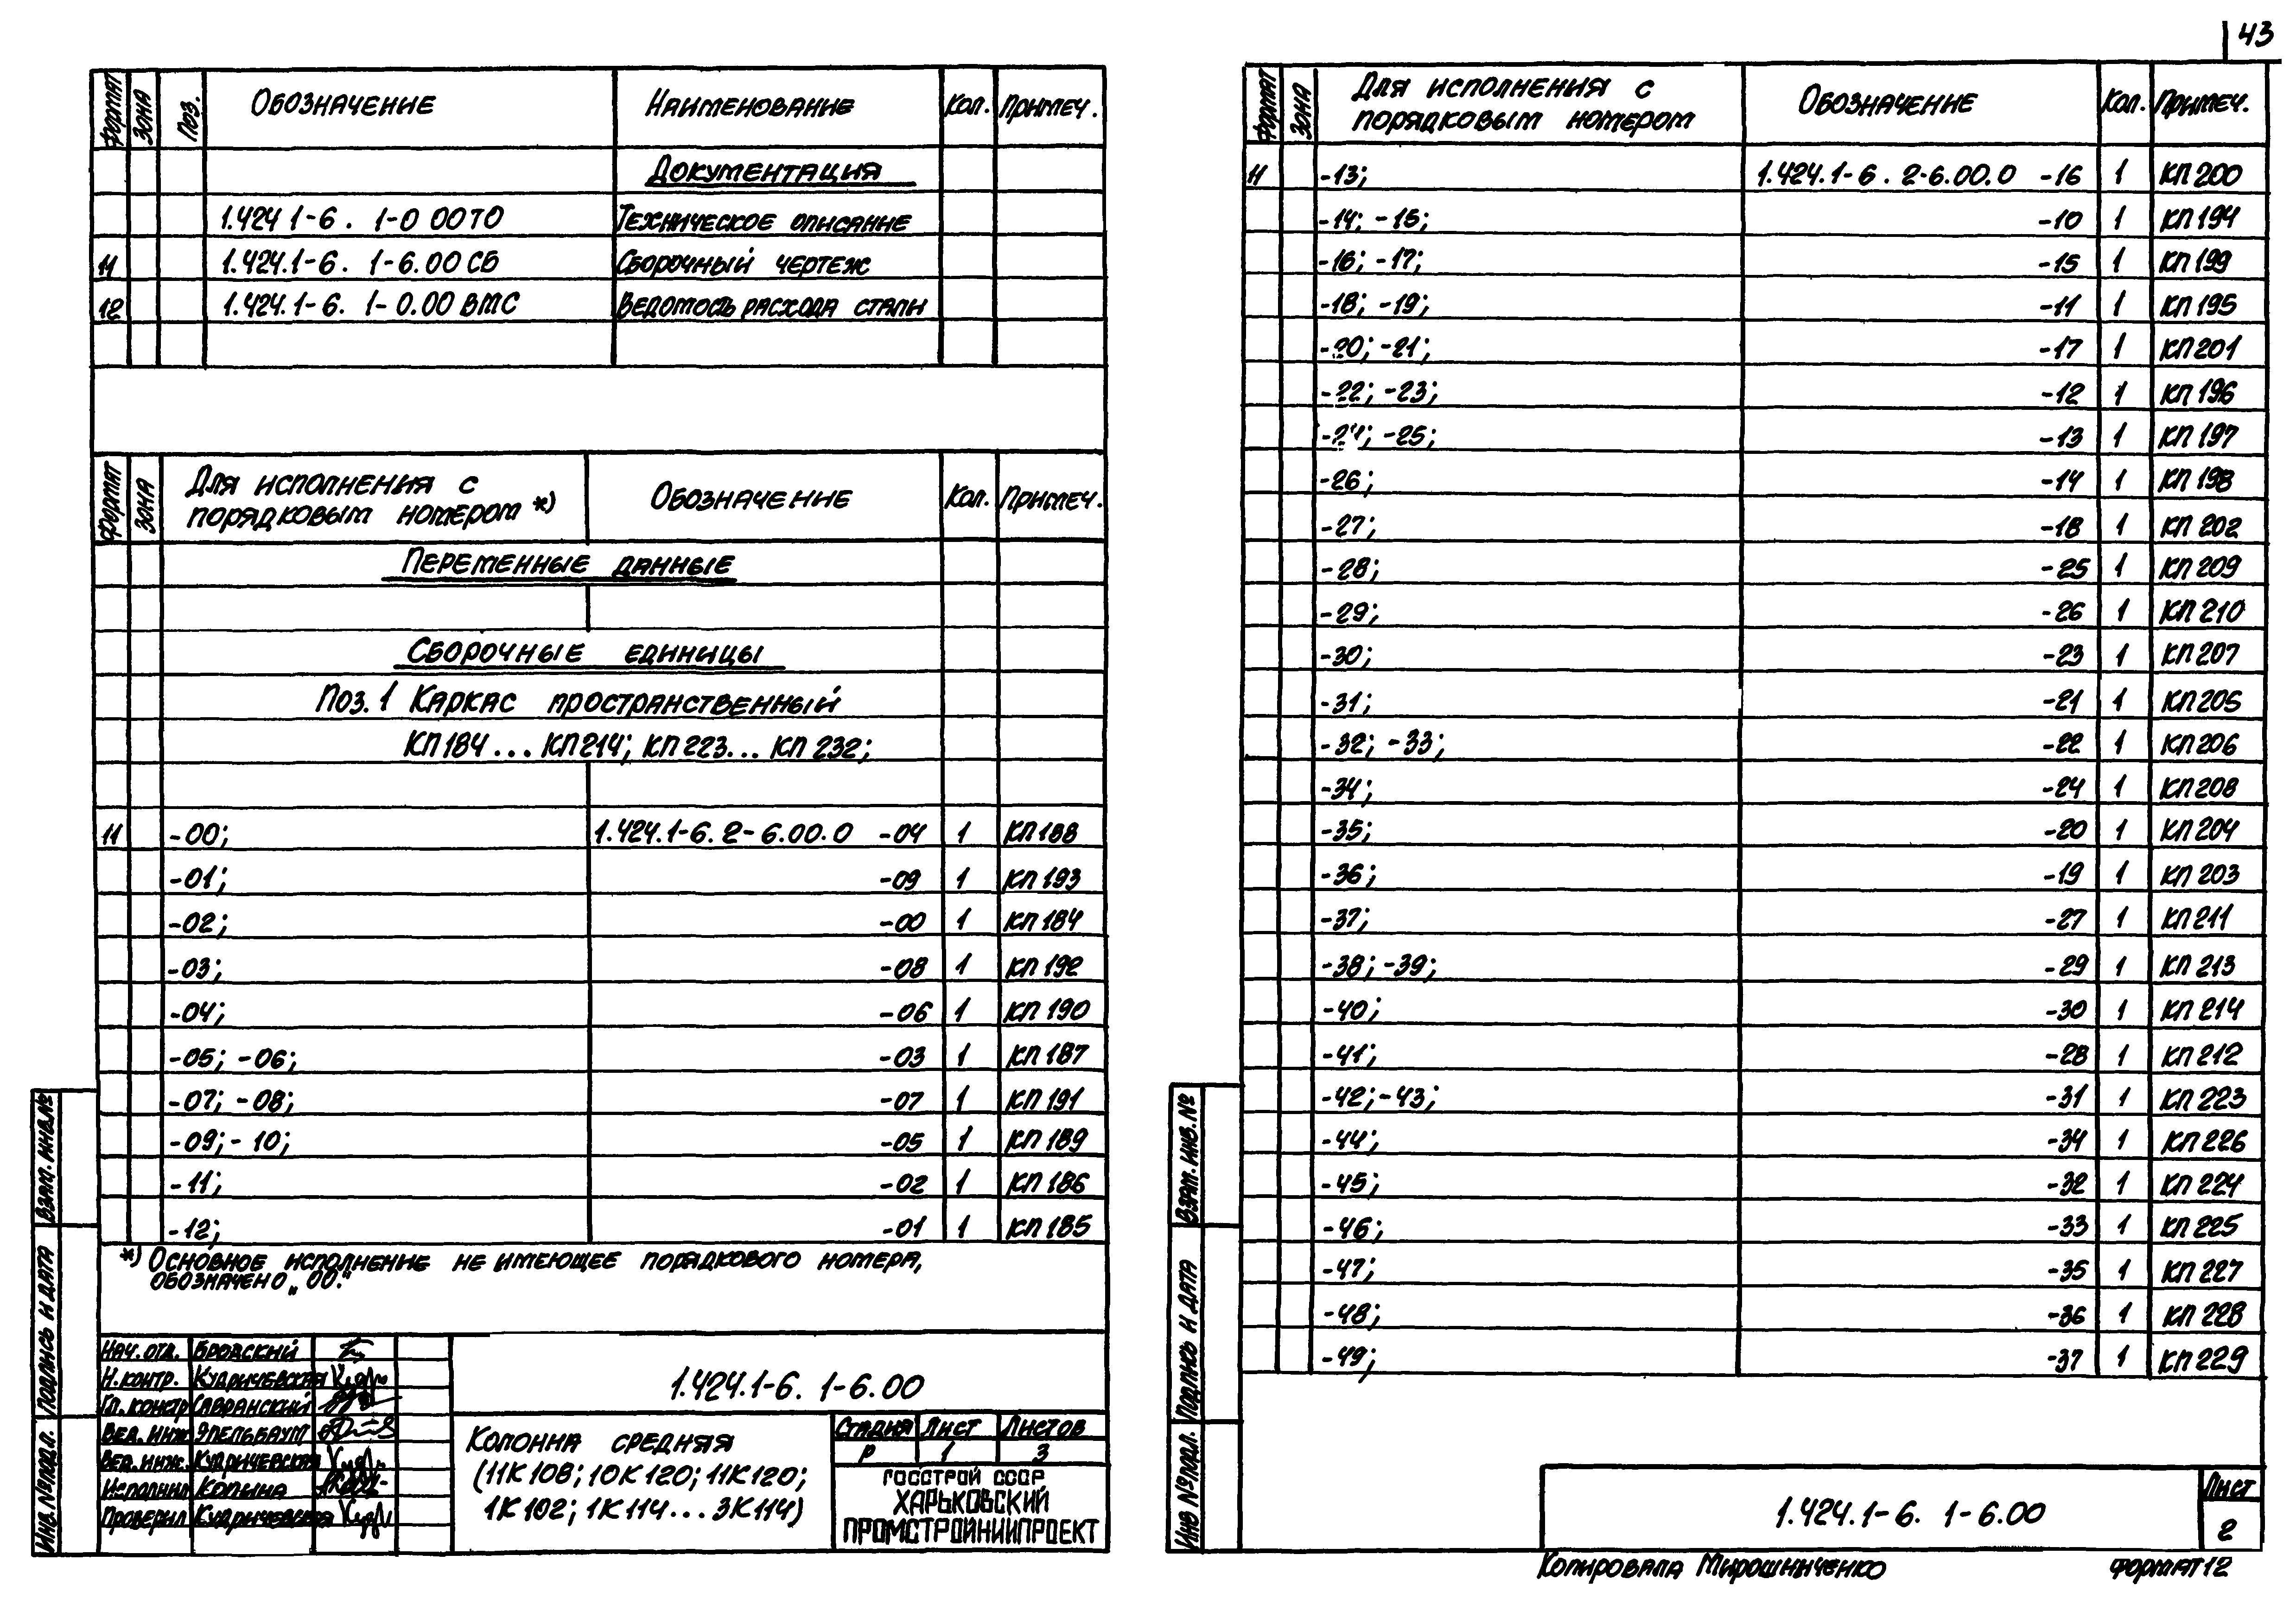 43
Формат Зона Поз. Обозначение Наименование Кол. Примеч.
Документация
1.424 1-6. 1-0 00ТО Техническое описание
11 1.424.1-6. 1-6.00 СБ Сборочный чертеж
12 1.424.1-6. 1-0.00 ВМС Ведомость расхода стали
Формат Зона Для исполнения с порядковым номером *) Обозначение Кол. Примеч.
Переменные данные
Сборочные единицы
Поз. 1 Каркас пространственный
КП184...КП214; КП223...КП232;
11 -00; 1.424.1-6.2-6.00.0 -04 1 КП188
-01; -09 1 КП193
-02; -00 1 КП184
-03; -08 1 КП192
-04; -06 1 КП190
-05; -06; -03 1 КП187
-07; -08; -07 1 КП191
-09; -10; -05 1 КП189
-11; -02 1 КП186
-12; -01 1 КП185
*) Основное исполнение не имеющее порядкового номера,
обозначено „00."
Взам. инв.№
Подпись и дата
Инв.№подл.
Нач. отд. Бродский
Н.контр. Кудричевская
Гл. констр Савранский
Вед. инж Эпельбаум
Вед. инж. Кудричевская
Исполнил Копина
Проверил Кудричевская
1.424.1-6. 1-6.00
Колонна средняя
(11К108; 10К120; 11К120;
1К102; 1К114...3К114)
Стадия Лист Листов
Р 1 3
Госстрой СССР
Харьковский
Промстройниипроект
Формат Зона Для исполнения с порядковым номером Обозначение Кол. Примеч.
11 -13; 1.424.1-6.2-6.00.0 -16 1 КП200
-14; -15; -10 1 КП194
-16; -17; -15 1 КП199
-18; -19; -11 1 КП195
-20; -21; -17 1 КП201
-22; -23; -12 1 КП196
-24; -25; -13 1 КП197
-26; -14 1 КП198
-27; -18 1 КП202
-28; -25 1 КП209
-29; -26 1 КП210
-30; -23 1 КП207
-31; -21 1 КП205
-32; -33; -22 1 КП206
-34; -24 1 КП208
-35; -20 1 КП204
-36; -19 1 КП203
-37; -27 1 КП211
-38; -39; -29 1 КП213
-40; -30 1 КП214
-41; -28 1 КП212
-42; -43; -31 1 КП223
-44; -34 1 КП226
-45; -32 1 КП224
-46; -33 1 КП225
-47; -35 1 КП227
-48; -36 1 КП228
-49; -37 1 КП229
Взам. инв.№
Подпись и дата
Инв №подл.
1.424.1-6. 1-6.00
Лист
2
Копировала Мирошниченко Формат 12